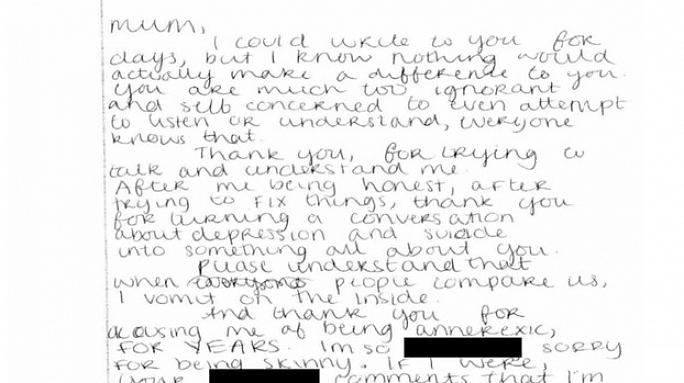 mum,
I could write to you for
days, but I know nothing would
actually make a difference to you.
You are much too ignorant
and self concerned to even attempt
to listen or understand, everyone
knows that.
Thank you, for trying to
talk and understand me.
After me being honest, after
trying to fix things, thank you
for turning a conversation
about depression and suicide
into something all about you.
Please understand that
when people compare us,
I vomit on the inside.
And thank you for
acusing me of being annerexic,
FOR YEARS. Im so sorry
for being skinny. If I were,
your comments that I'm